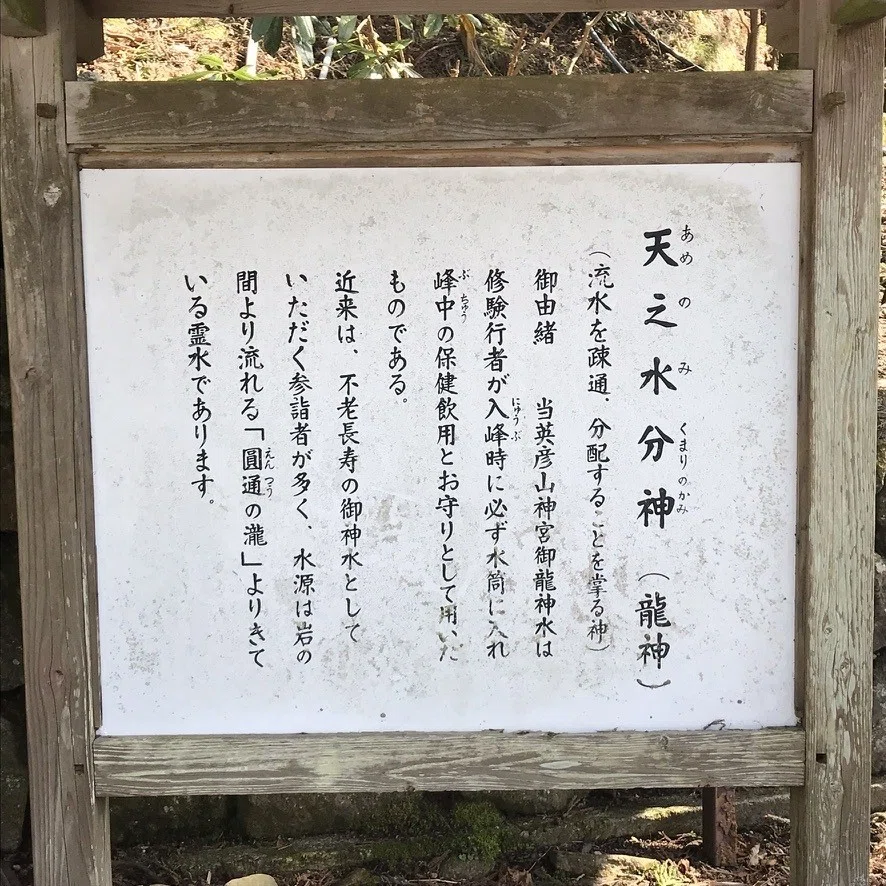 天之水分神（龍神）
あめ の み くまりのかみ
（流水を疎通、分配することを掌る神）
御由緒　当英彦山神宮御龍神水は
修験行者が入峰時に必ず水筒に入れ
にゅうぶ
峰中の保健飲用とお守りとして用いた
ぶちゅう
ものである。
近来は、不老長寿の御神水として
いただく参詣者が多く、水源は岩の
間より流れる「圓通の瀧」よりきて
えんつう
いる霊水であります。